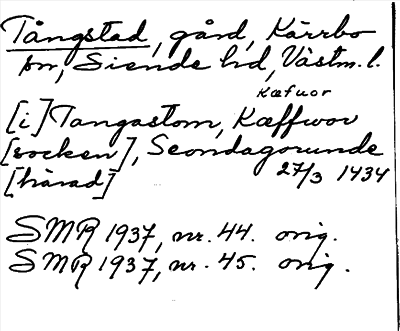 Tångstad, gård, Kärrbo
sn, Siende hd, Västm. l.
Kæfuor
[i] Tangastom, Kæffwor
[socken], Seondagorunde
[härad] 27/3 1434
SMR 1937, nr. 44. orig.
SMR 1937, nr. 45. orig.